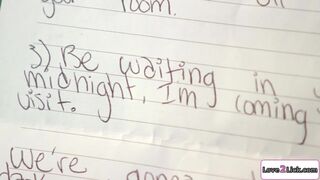 your room.
3) Be waiting in
midnight, I'm coming
visit.
We're
Love2Lick.com